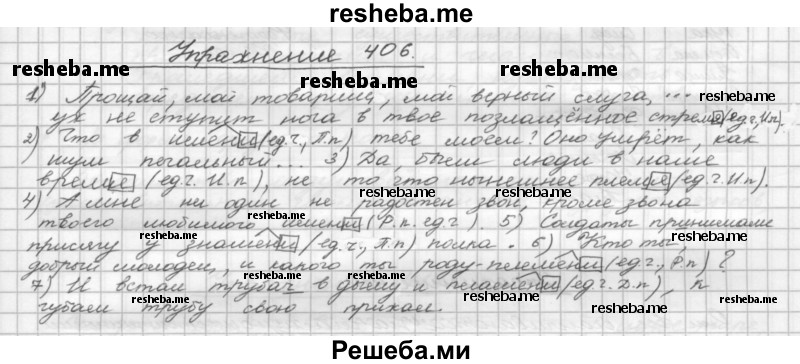 resheba.me
Упражнение 406.
resheba.me resheba.me
1) Прощай, мой товарищ, мой верный слуга, ...
resheba.me resheba.me
уж не ступит нога в твое позлащённое стремя (ед.ч, И.п).
2) Что в имени (ед.ч, П.п) тебе моем? Оно умрёт, как
шум печальный... 3) Да, были люди в наше
resheba.me resheba.me
время (ед.ч. И.п), не то что нынешнее племя (ед.ч. И.п).
4) А мне ни один не радостен звон, кроме звона
твоего любимого имени (Р.п. ед.ч). 5) Солдаты принимали
resheba.me
присягу у знамени (ед.ч., П.п) полка. 6) Кто ты,
resheba.me
добрый молодец, и какого ты роду-племени (ед.ч, Р.п)?
resheba.me
7) И встал трубач в дыму и пламени (ед.ч. Д.п), к
resheba.me
губам трубу свою прижал.
resheba.me
Решеба.ми